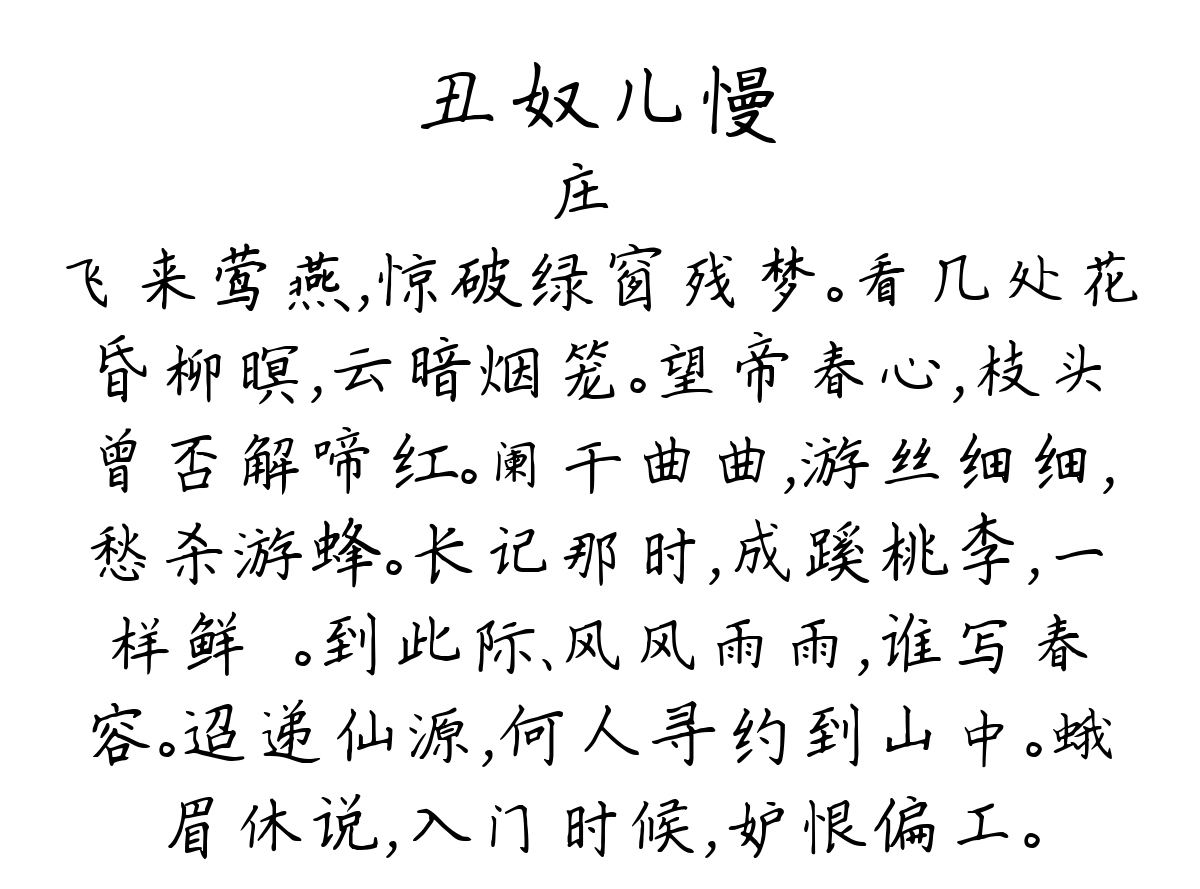 丑奴儿慢
庄
飞来莺燕,惊破绿窗残梦。看几处花
昏柳暝,云暗烟笼。望帝春心,枝头
曾否解啼红。阑干曲曲,游丝细细,
愁杀游蜂。长记那时,成蹊桃李,一
样鲜 。到此际、风风雨雨,谁写春
容。迢递仙源,何人寻约到山中。蛾
眉休说,入门时候,妒恨偏工。